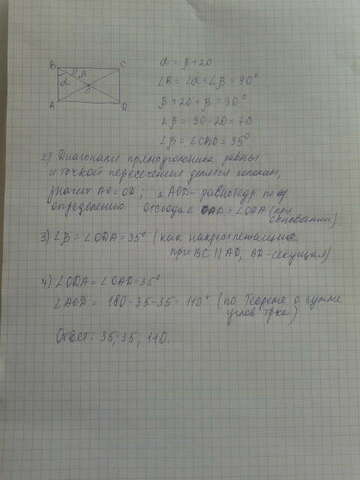 B C
α β
A D
α = β + 20
∠B = ∠α + ∠β = 90°
β + 20 + β = 90°
2β = 90 - 20 = 70
∠β = ∠OAD = 35°
2) Диагонали прямоугольника равны
и точкой пересечения делятся пополам,
значит AO = OD; △ AOD - равнобедр по
определению отсюда ∠ OAD = ∠ODA (при
основании)
3) ∠β = ∠ODA = 35° (как накрест лежащие
при BC || AD, BD - секущая)
4) ∠ODA = ∠OAD = 35°
∠AOD = 180 - 35 - 35 = 110° (по Теореме о сумме
углов тр-ка)
Ответ: 35; 35; 110.